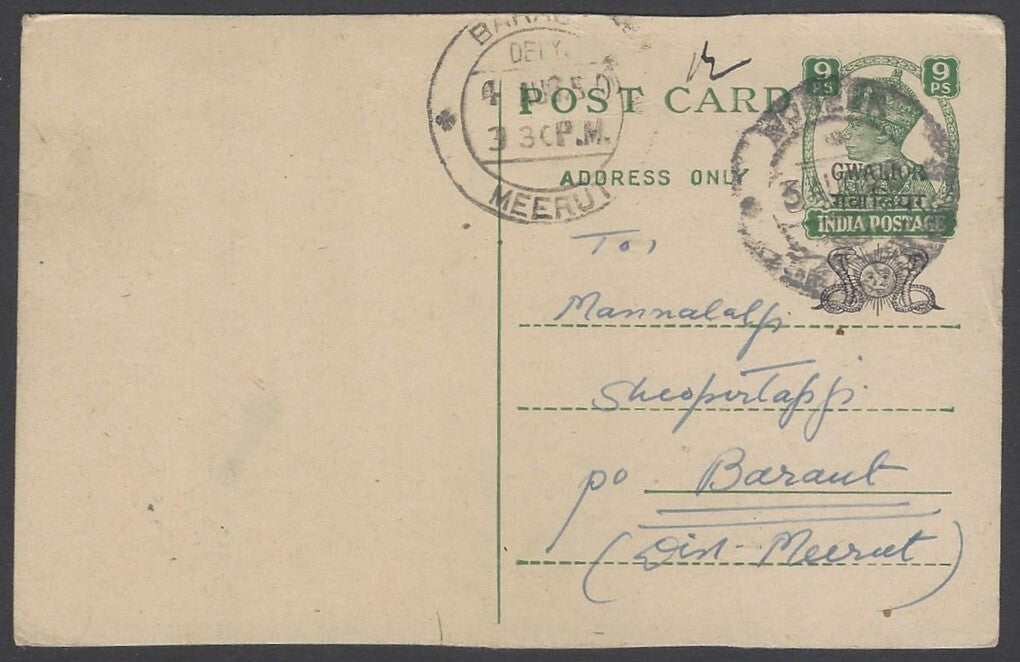 DELY.
4 AUG 50
3 30 P.M.
MEERUT
POST CARD
ADDRESS ONLY
9 PS
9 PS
GWALIOR
गवालियर
INDIA POSTAGE
To,
Mannalalji
Sheopertapji
po Baraut
(Dist- Meerut)